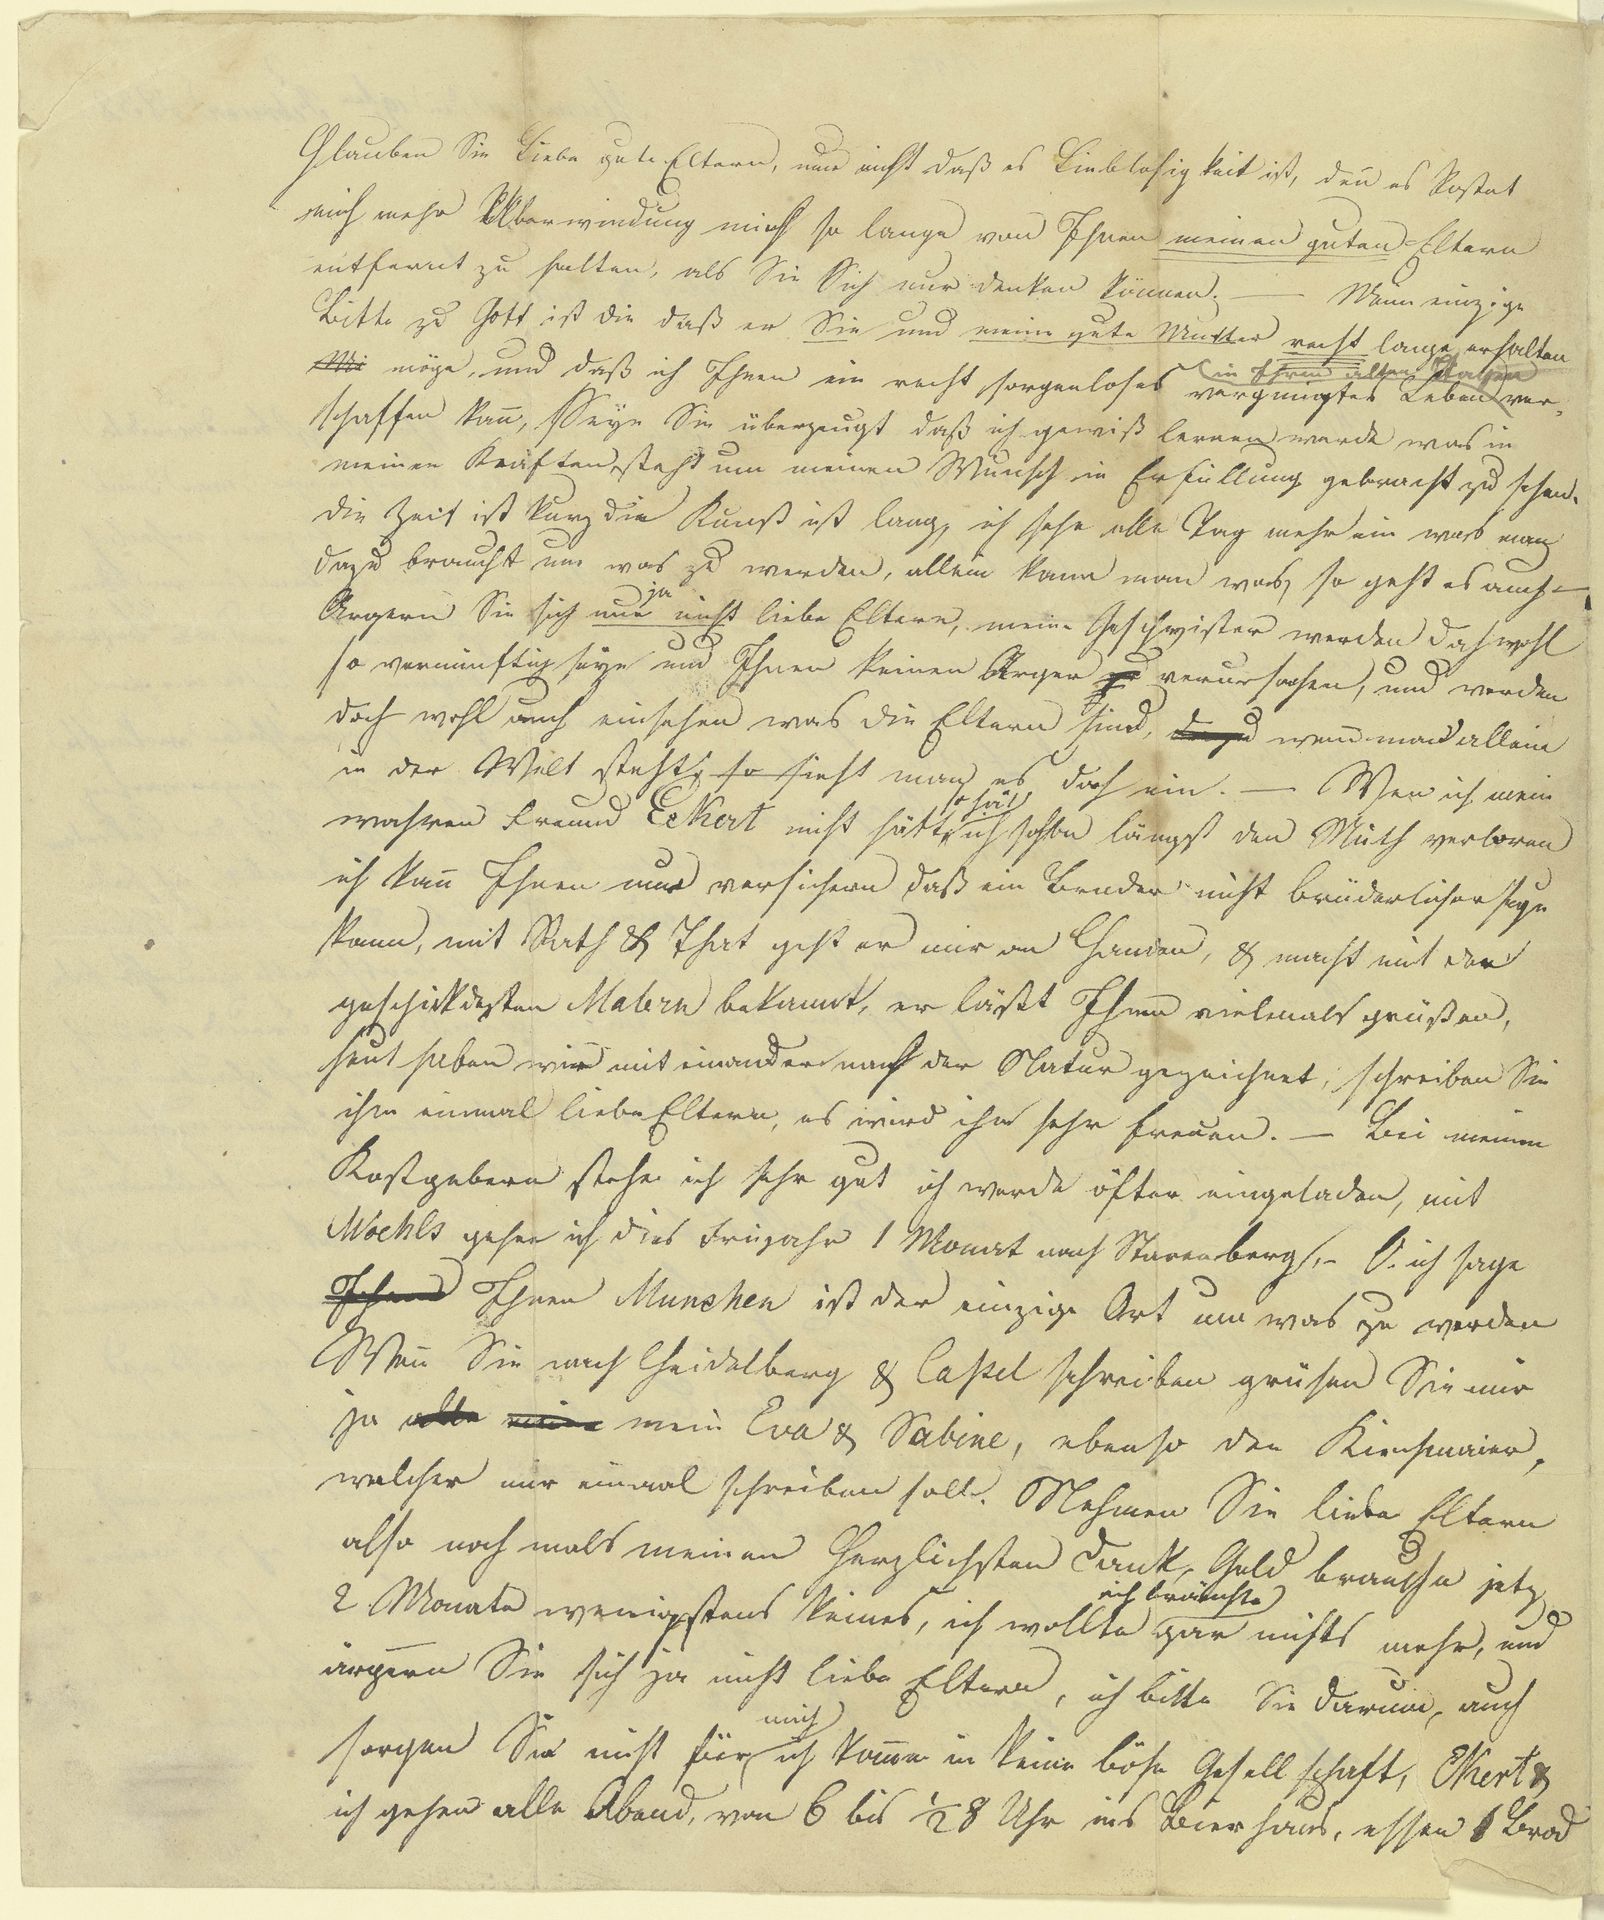 Glauben Sie Liebe gute Eltern, nur nicht daß es Lieblosigkeit ist, deñ es kostet
mich mehr Überwindung mich so lange von Ihnen meinen guten Eltern
entfernt zu halten, als Sie Sich nur denken können. — Meine einzige
Bitte zu Gott ist die daß er Sie und meine gute Mutter recht lange erhalten
Mi möge, und daß ich Ihnen ein recht sorgenloses vergnügtes Leben ver-
in Ihren alten Tagen
schaffen kañ, Seyn Sie überzeugt daß ich gewiß lernen werde was in
meinen Kräften steht um meinen Wunsch in Erfüllung gebracht zu sehen.
die Zeit ist kurz die Kunst ist lang, ich sehe alle Tag mehr ein was man
dazu braucht um was zu werden, allein kann man was, so geht es auch —
Ärgern Sie sich nur ja nicht liebe Eltern, meine Geschwister werden doch wohl
so vernünftig seyn und Ihnen keinen Ärger zu verursachen, und werden
doch wohl auch einsehen was die Eltern sind, wenn man allein
in der Welt steht, so sieht man es doch ein. — Wen ich mein
wahren Freund Eckert nicht hätte, so hät ich schon längst den Muth verloren
ich kañ Ihnen nur versichern daß ein Bruder nicht brüderlicher seyn
kann, mit Rath & That geht er mir an Handen, & macht mit den
geschickdesten Malern bekannt, er läßt Ihnen vielmals grüßen,
heut haben wir mit einander nach der Natur gezeichnet, schreiben Sie
ihm einmal liebe Eltern, es wird ihn sehr freuen. — Bei meinen
Kostgebern stehe ich sehr gut ich werde öfter eingeladen, mit
Moehls gehe ich dies Frujahr 1 Monat nach Starenberg, - O ich sage
Ihnen Ihnen Munchen ist der einzige Ort um was zu werden
Weñ Sie nach Heidelberg & Caßel schreiben grüsen Sie mir
ja alle meine mein Eva & Sabine, ebenso den Kirchmaier,
welcher mir einmal schreiben soll. Nehmen Sie liebe Eltern
also noch mals meinen Herzlichsten Dank, Geld brauche jetz
2 Monate wenigstens keines, ich wollte ich bräuchte gar nichts mehr, und
ärgern Sie sich ja nicht liebe Eltern, ich bitte Sie darum, auch
sorgen Sie nicht für mich ich kom̅e in keine böse Gesellschaft, Ekert &
ich gehen alle Abend, von 6 bis ½8 Uhr ins Bierhaus, essen 1 Brod